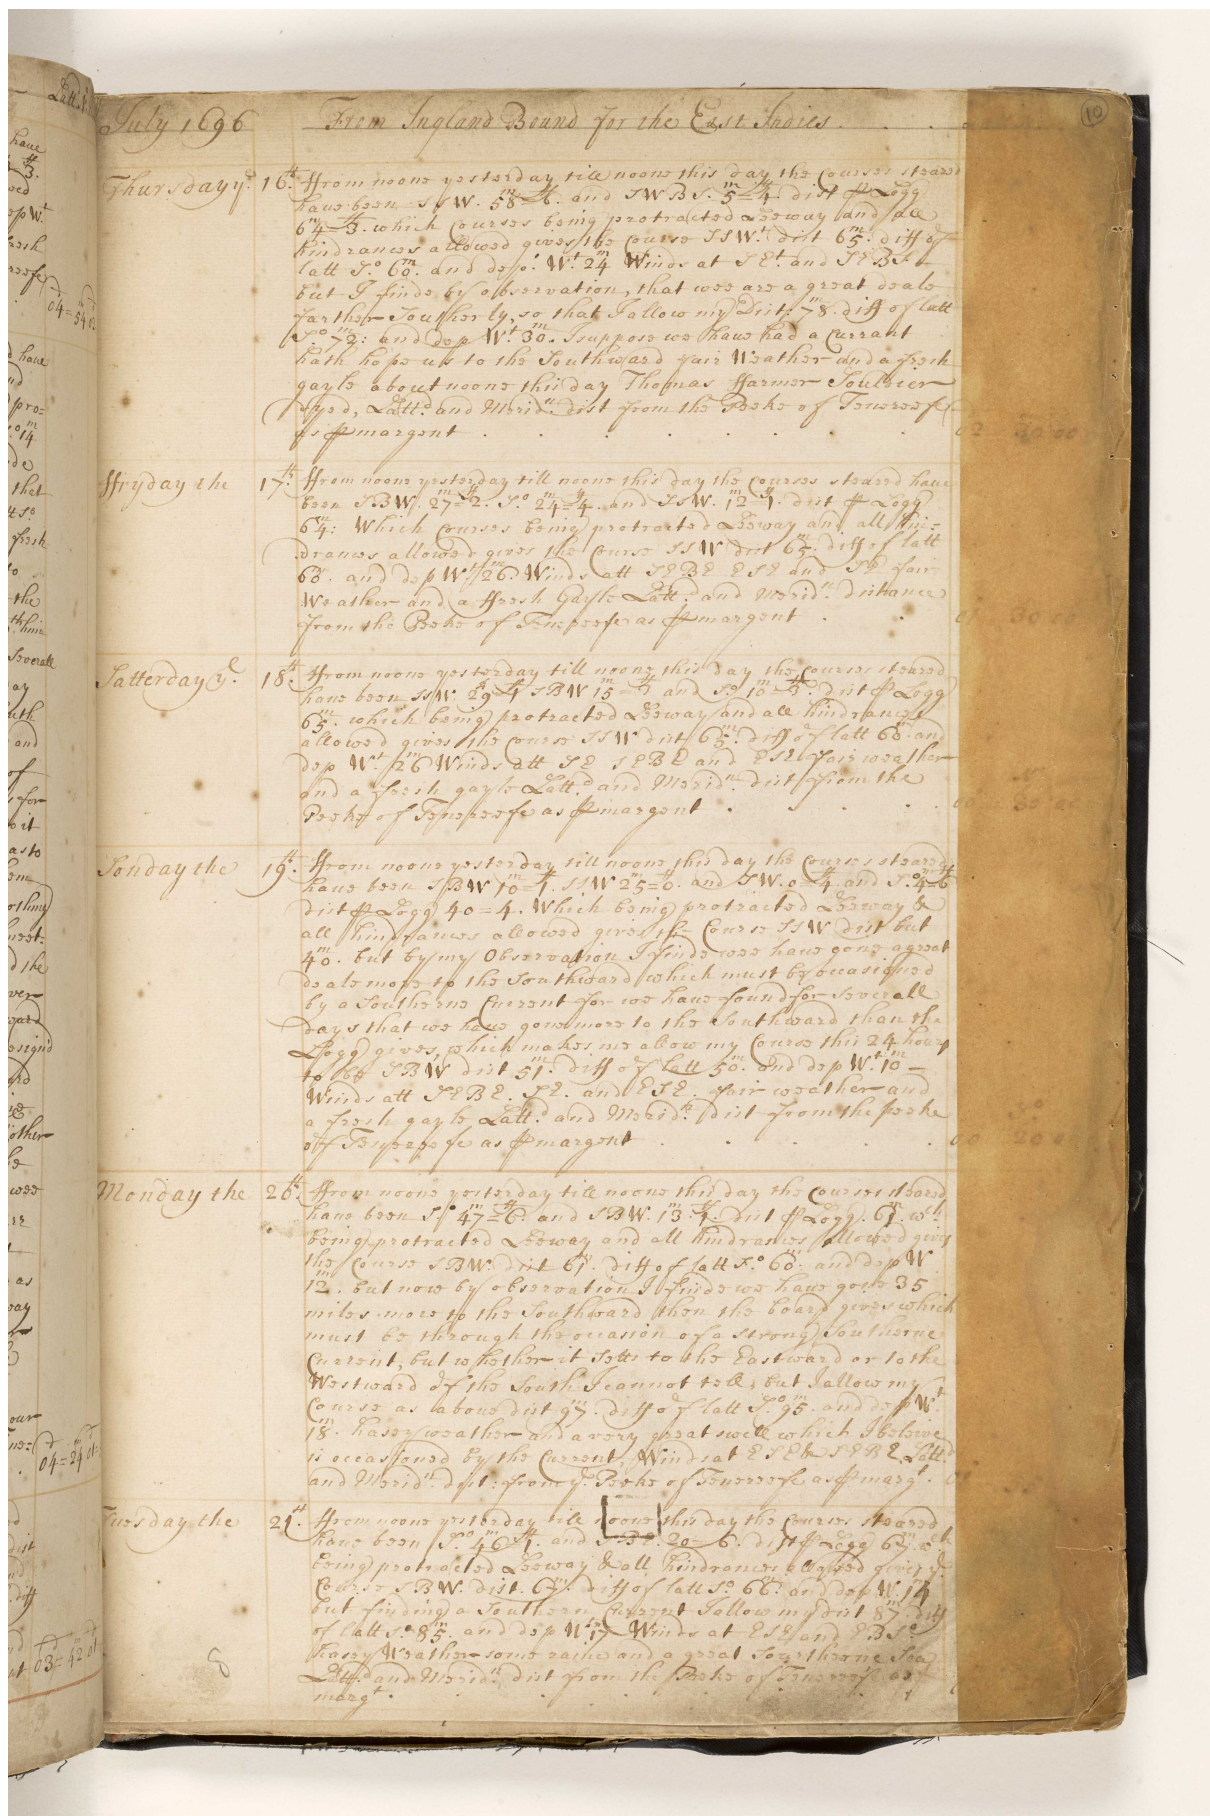 10
July 1696 From England Bound for the East Indies
Thursday ye 16th ffrom noone yesterday till noone this day the Courses steared
have been SSW. 58m=6f. and SWBS. 5m=4f dist ⅌ Logg
64m=3f. which Courses being protracted Leeway and all
hindrances allowed gives the Course SSWt. dist 65m. diff of
latt So. 60m. and dep: Wt. 24m Winds at SEt. and SEBS
but I finde by observation, that wee are a great deale
farther Southerly, so that I allow my Dist: 78m. diff of latt
So. 72m: and dep Wt. 30m. I suppose we have had a Currant
hath hope us to the Southward fair Weather and a fresh
gayle about noone this day Thomas Harmer Souldier
dyed, Lattd. and Meridn. dist from the Peeke of Tenereefe
as ⅌ margent
ffryday the 17th. ffrom noone yesterday till noone this day the Courses steared have
been SBW. 27m=2f. So. 24m=4f. and SSW. 12m=1f. dist ⅌ Logg
64m: Which Courses being protracted Leeway and all hin=
drances allowed gives the Course SSW dist 65m. diff of latt
60m. and dep Wt. 26m. Winds att SEBE ESE and SE fair
Weather and a ffresh Gayle Lattd. and Meridn. distance
from the Peeke of Tenereefe as ⅌ margent
Satterday ye. 18th. ffrom noone yesterday till noone this day the Courses steared
have been SSW. 29=1 SBW 15m= and So 10m=3f. dist ⅌ Logg
65m. which being protracted Leeway and all hindrances
allowed gives the Course SSW dist 65m. diff of latt 60m and
dep Wt 26m Winds att SE SEBE and ESE fair weather
and a fresh gayle Lattd. and Meridn. dist from the
Peeke of Tenereefe as ⅌ margent
Sonday the 19th. ffrom noone yesterday till noone this day the Courses steared
have been SBW 10m=1f. SSW 25m=0f. and SW. 0=4f and So. 4m=6f
dist ⅌ Logg 40=4. Which being protracted Leeway &
all hindrances allowed gives the Course SSW dist but
40m. but by my Observation I finde wee have gone a great
deale more to the Southward which must be occasioned
by a Southerne Current for we have found for severall
days that we have gone more to the Southward than the
Logg gives, which makes me allow my Course this 24 hours
to be SBW dist 51m. diff of latt 50m. and dep Wt. 10m
Winds att SEBE. SE. and ESE. fair weather and
a fresh gayle Lattd. and Meridn. dist from the peeke
off Tenereefe as ⅌ margent
Monday the 20th. ffrom noone yesterday till noone this day the Courses steared
have been So 47m=6f. and SBW. 13m.1f. dist ⅌ Logg. 61m. wch.
being protracted Leeway and all hindrances allowed gives
the Course SBW. dist 61m. diff of latt So. 60m. and dep W
12m. but now by observation I finde we have gone 35
miles more to the Southward then the board gives which
must be through the occasion of a strong Southerne
Current, but whether it setts to the Eastward or to the
Westward of the South I cannot tell, but I allow my
Course as above dist 97m. diff of latt So. 95m. and dep Wt.
18m. hasey weather and a very great swell which I beleive
is occasioned by the Current, Winds at ESE & SEBE. Lattd.
and Meridn. dist: from ye. Peeke of Tenereefe as ⅌ margt.
Tuesday the 21th. ffrom noone yesterday till noone this day the Courses steared
have been So. 46m 1f. and SBE. 20=6. dist ⅌ Logg 67m. wch
being protracted Leeway & all hindrances allowed gives ye.
Course SBW. dist. 67m. diff of latt So. 66m. and dep W. 14
but finding a Southern Current I allow my dist 87m. diff
of latt So. 85m. and dep Wt. 17m Winds at ESE and EBSo.
hasey Weather some raine and a great Southerne Sea
Lattd. and Meridn. dist from the Peeke of Tenereefe as ⅌
margt.
8